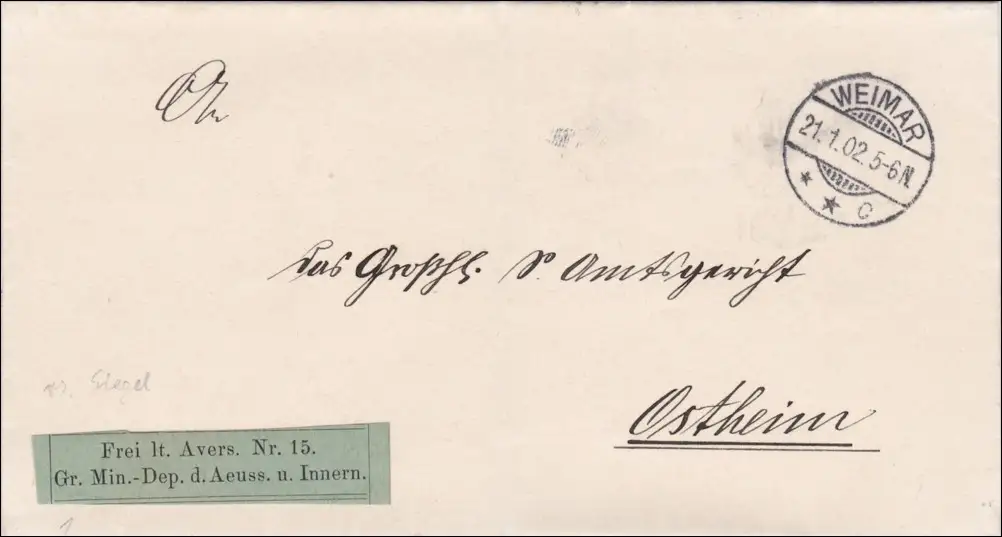 An
WEIMAR
21.1.02.5-6N.
* * c
das Großhl. S. Amtsgericht
Ostheim
rs. Siegel
Frei lt. Avers. Nr. 15.
Gr. Min.-Dep. d. Aeuss. u. Innern.
1